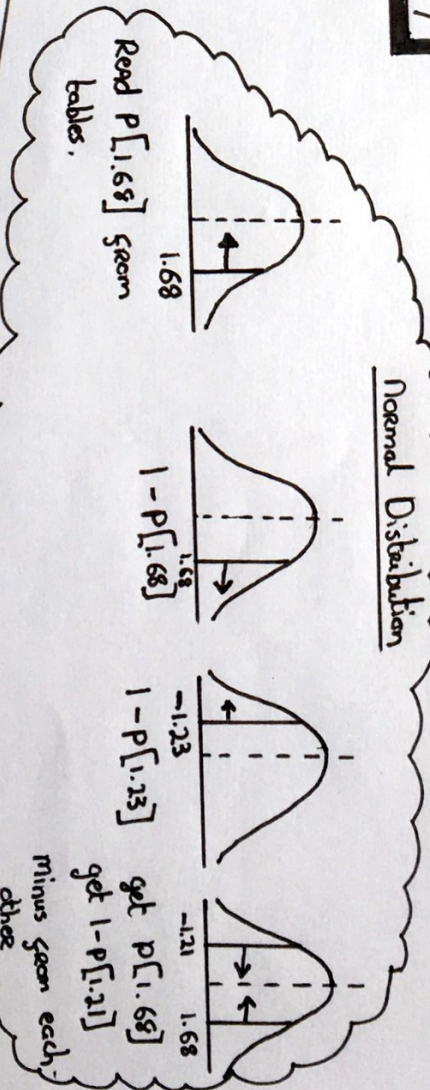 Normal Distribution
1.68
Read P[1.68] from
tables.
1.68
1-P[1.68]
-1.23
1-P[1.23]
-1.21
1.68
get P[1.68]
get 1-P[1.21]
minus from each
other